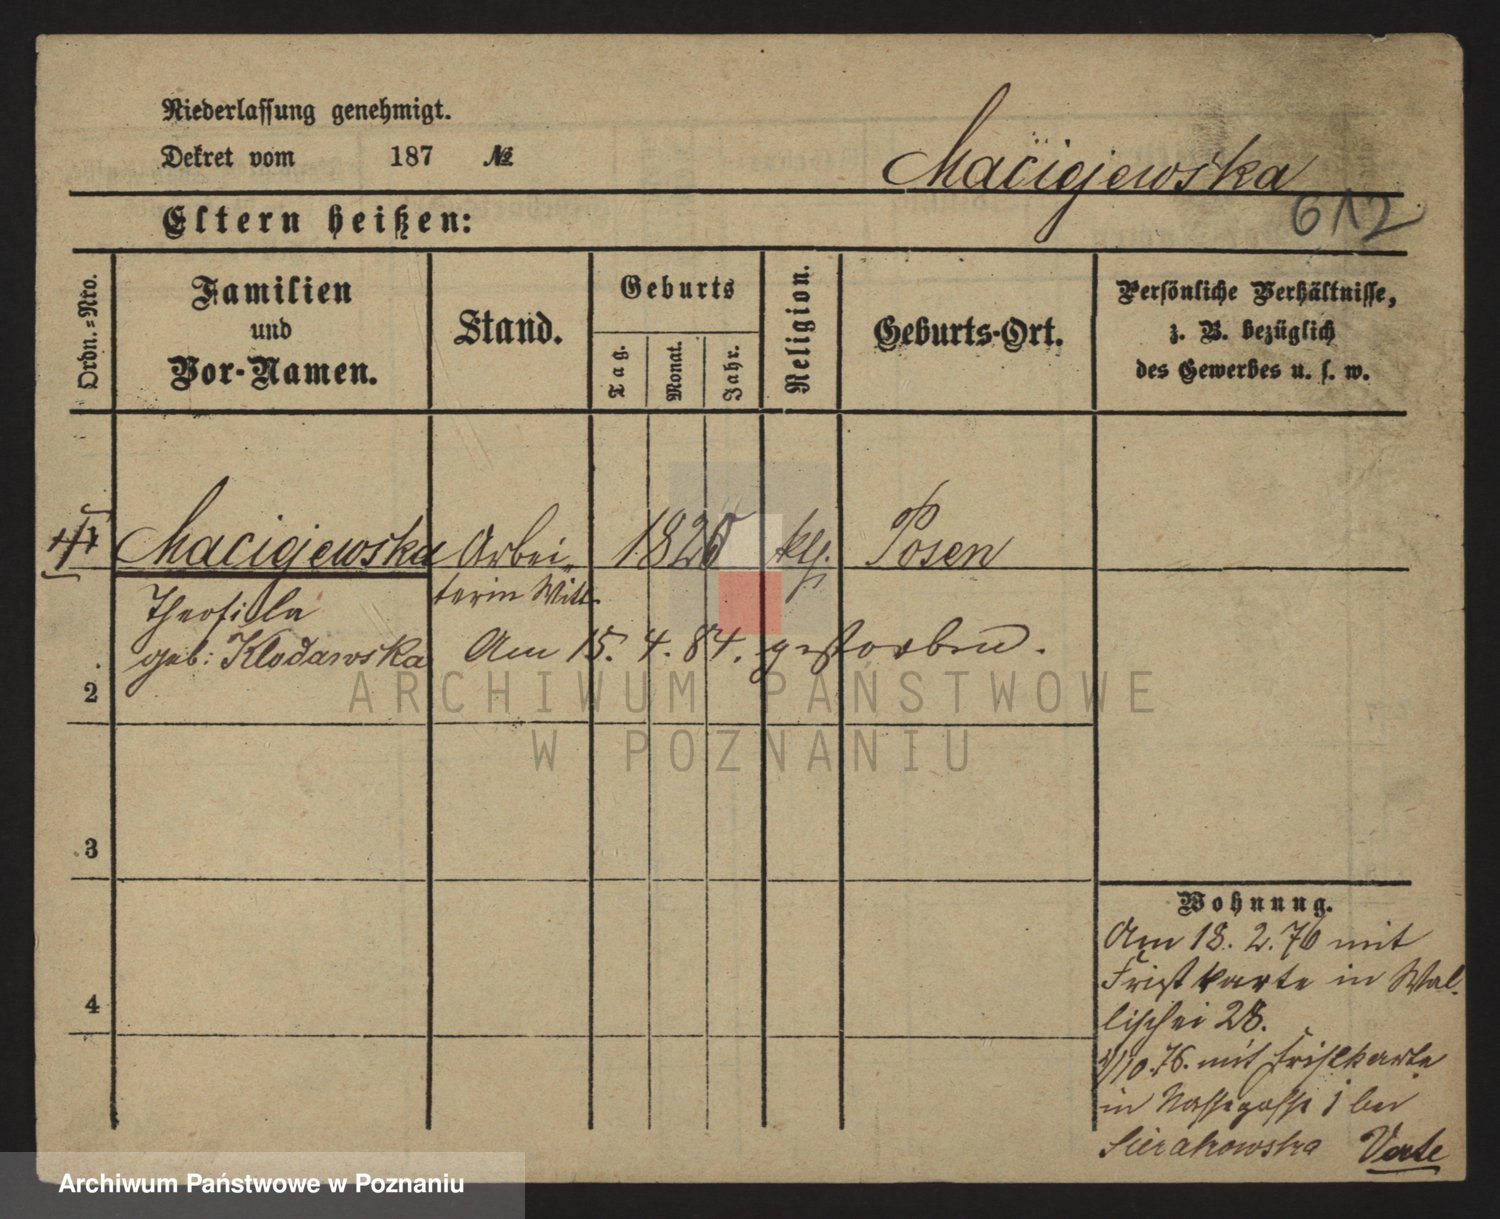 Niederlassung genehmigt.
Dekret vom 187 №
Maciejewska
612
Eltern heißen:
Ordn.=Nro.
Familien
und
Vor-Namen.
Stand.
Geburts
Tag.
Monat.
Jahr.
Religion.
Geburts-Ort.
Persönliche Verhältnisse,
z. B. bezüglich
des Gewerbes u. s. w.
1 Maciejewska Arbei- 1820 kth. Posen
Theofila terin Witt.
geb: Klodawska Am 15. 4. 84. gestorben.
2
ARCHIWUM PAŃSTWOWE
W POZNANIU
3
4
Wohnung.
Am 18. 2. 76 mit
Fristkarte in Wal-
lischei 28.
1/10. 76. mit Fristkarte
in Nassegasse 1 bei
Sierakowska Verte
Archiwum Państwowe w Poznaniu